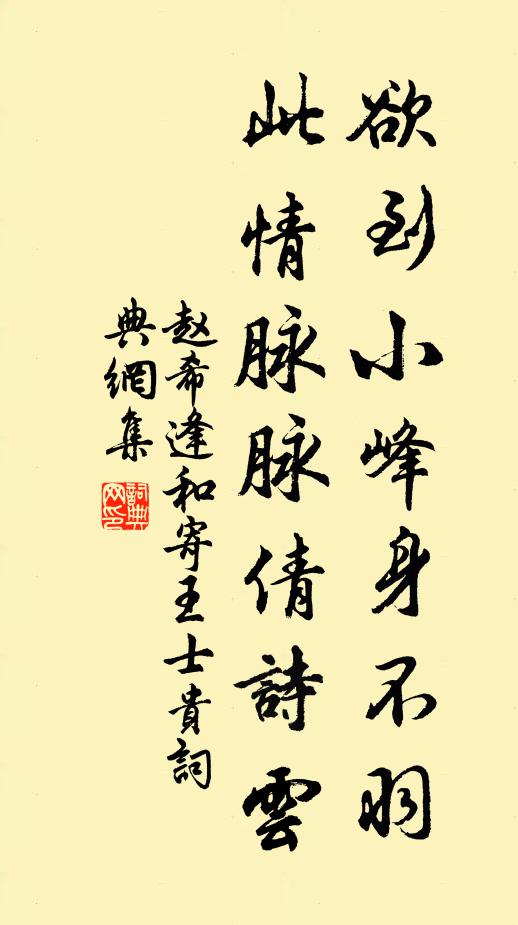 欲到小峰身不羽
此情脉脉倩詩雲
赵希逢和寄王士貴詞
典網集
詞典
网印